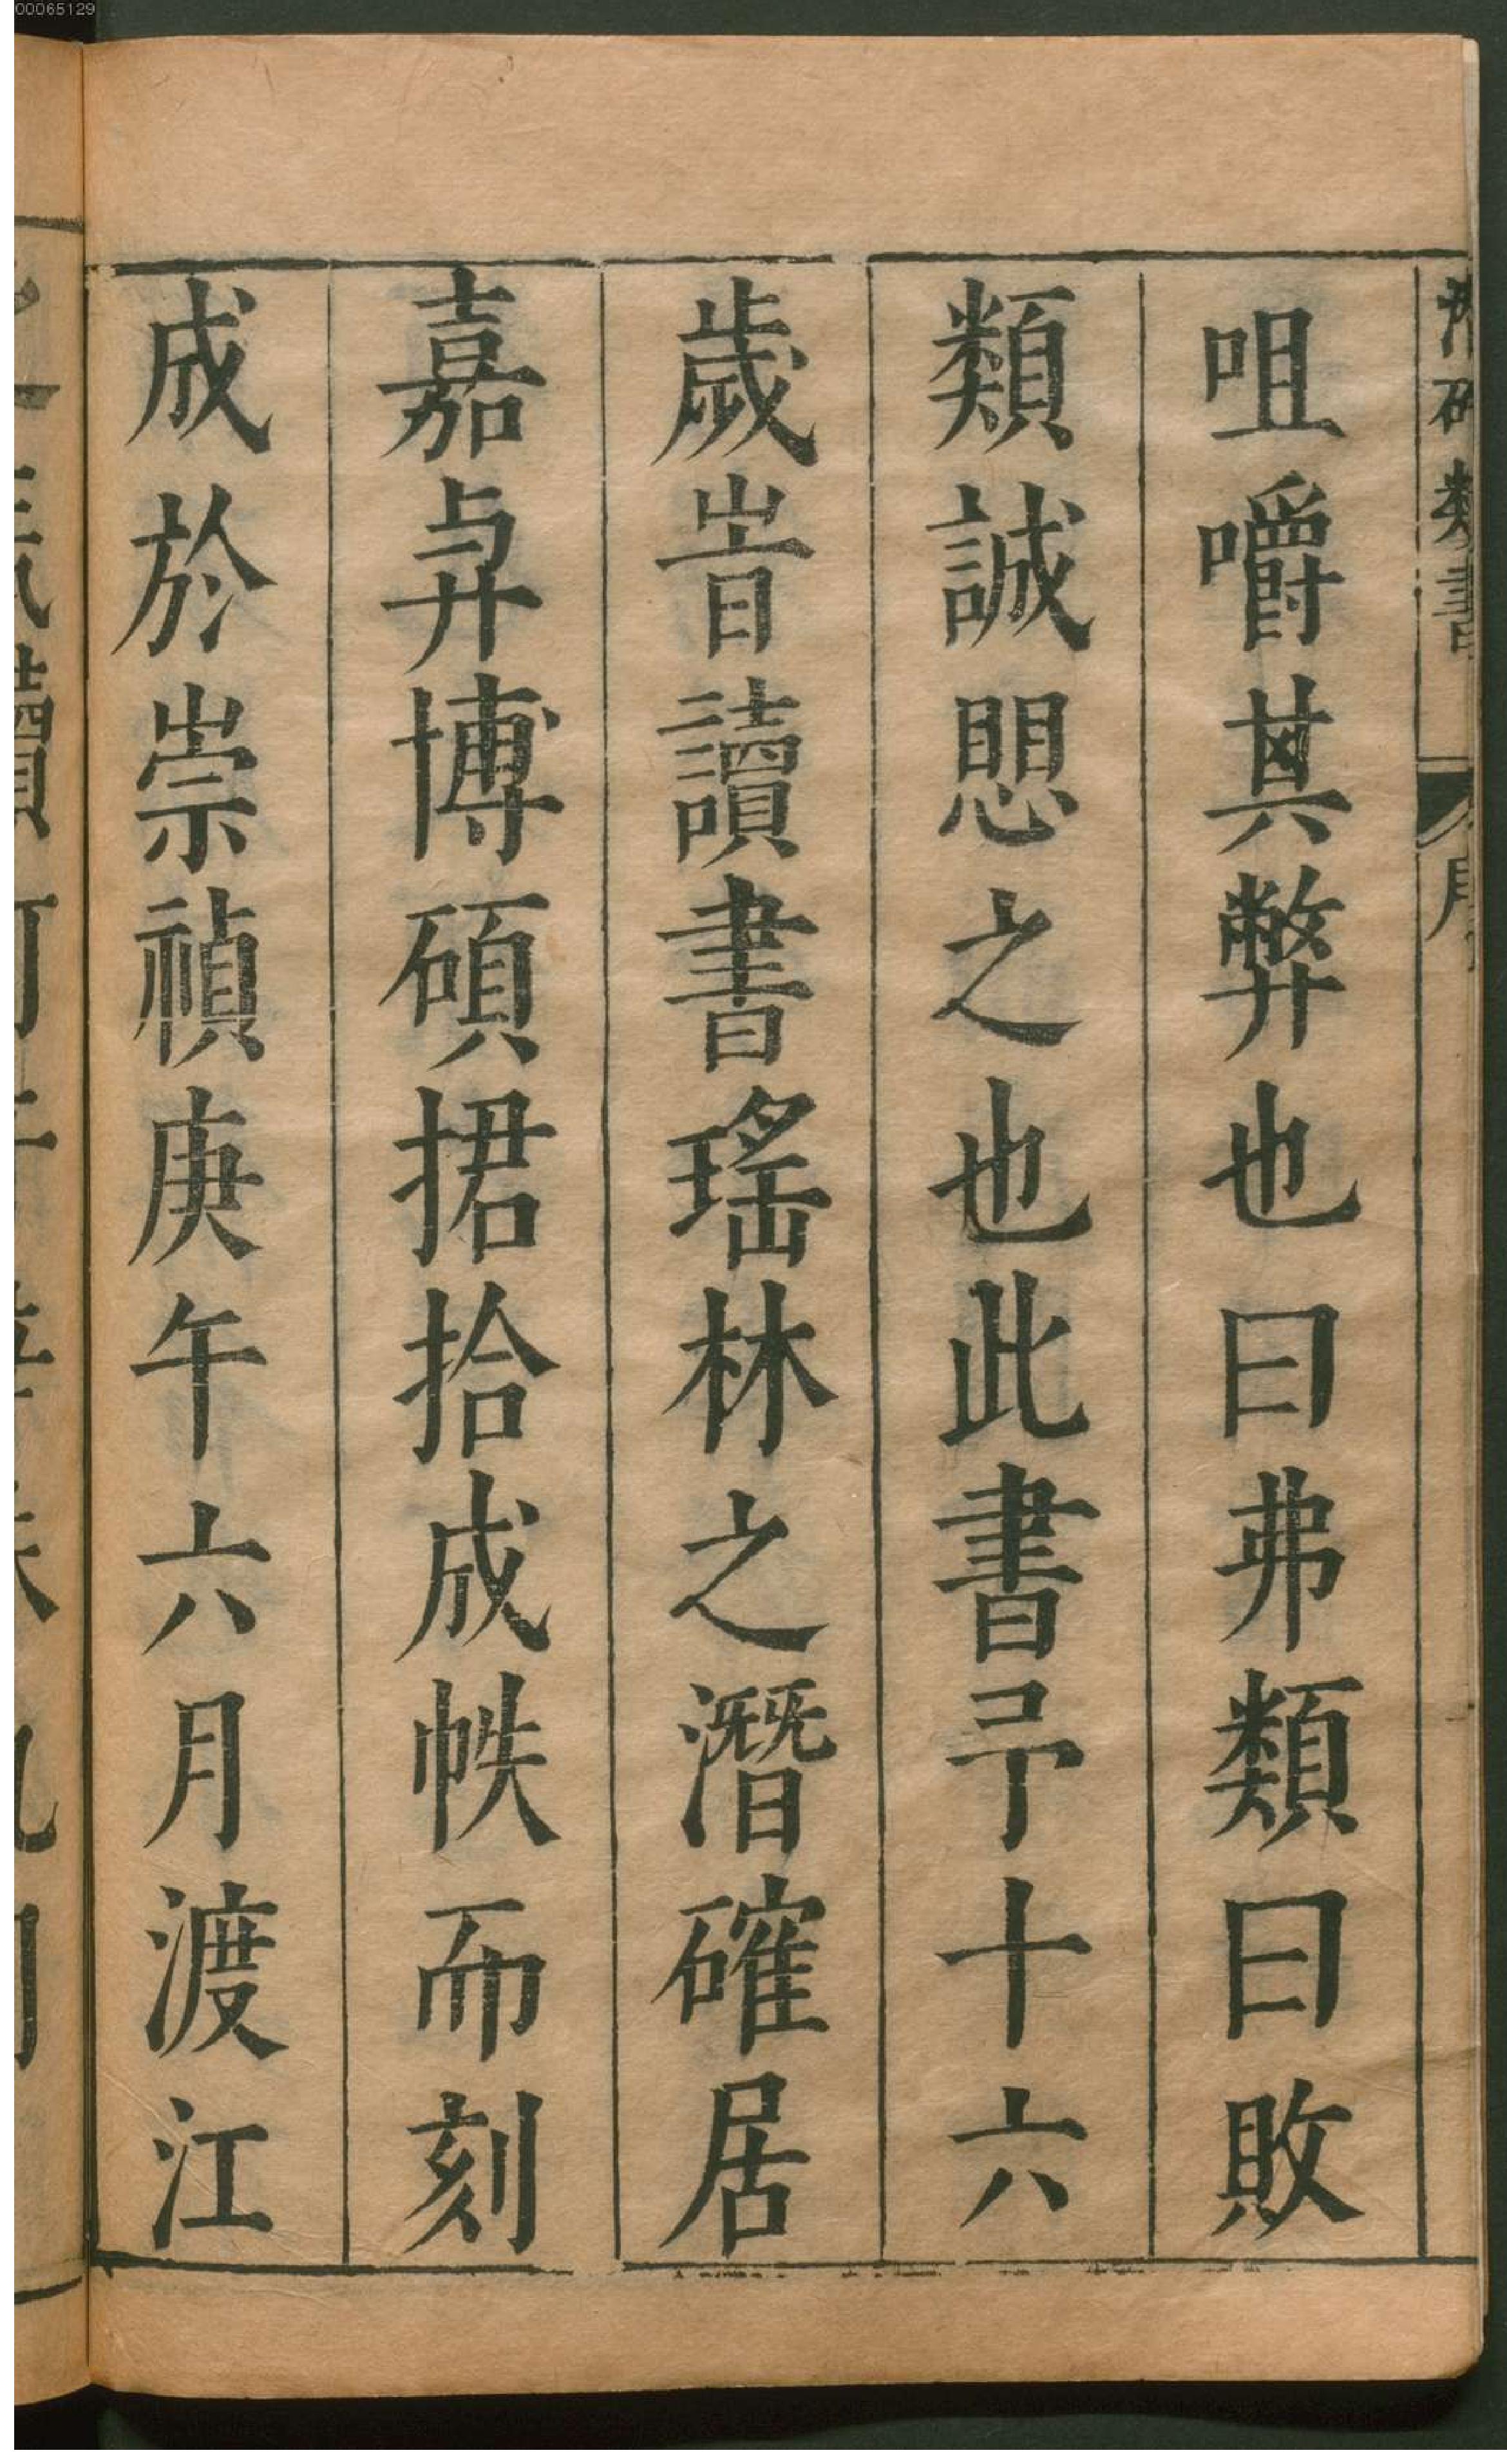 00065129
潛確類書
序
咀嚼其弊也曰弗類曰敗
類誠愳之也此書予十六
歲旹讀書瑤林之潛確居
嘉與博碩捃拾成帙而刻
成於崇禎庚午六月渡江